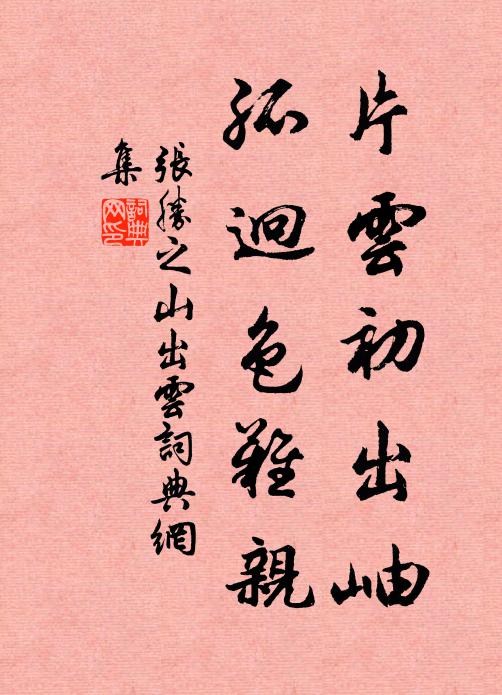 片雲初出岫
孤迥色難親
張勝之山出雲詞典網
集
詞典
网印